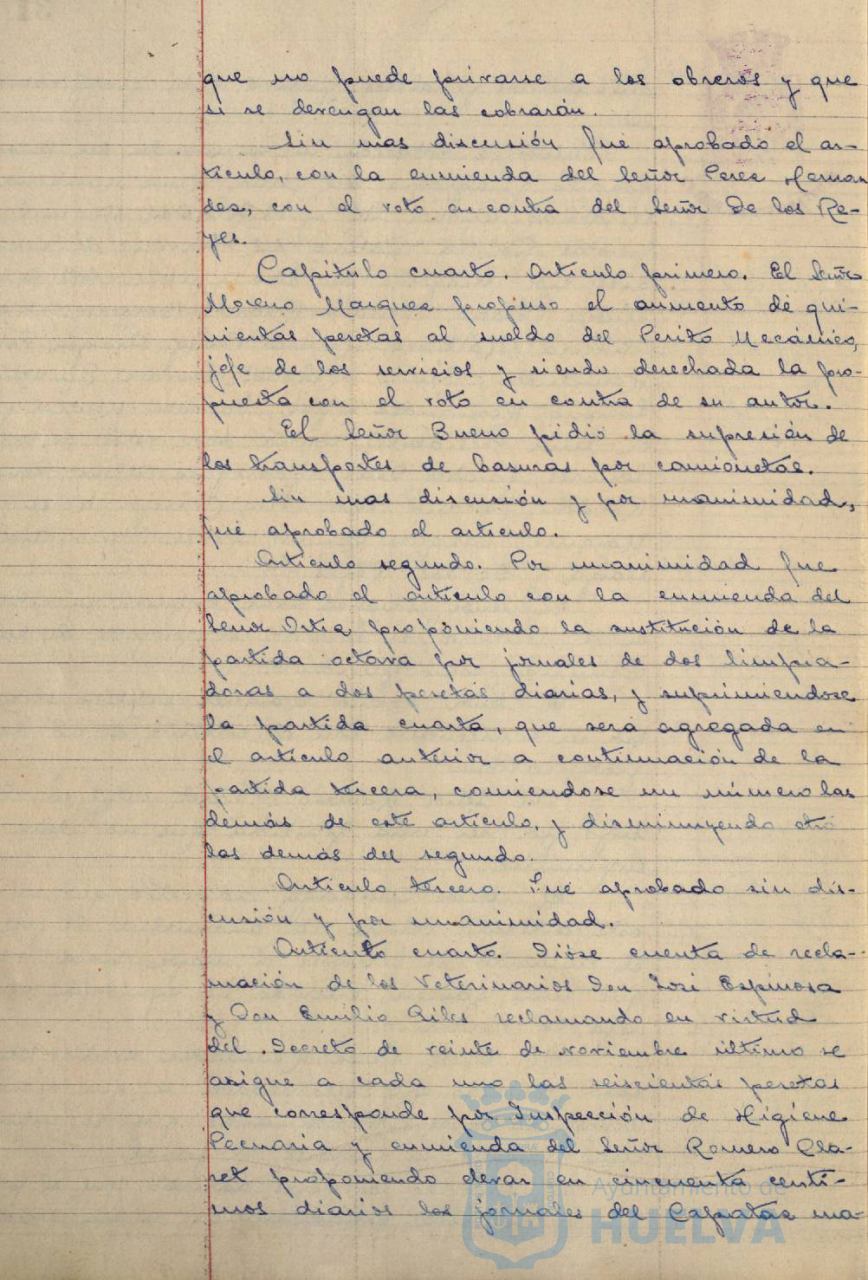 que no puede privarse a los obreros y que
si se devengan las cobrarán.
Sin mas discusión fué aprobado el ar-
tículo, con la enmienda del Señor Perez Hernan
dez, con el voto en contra del Señor De los Re-
yes.
Capitulo cuarto. Articulo primero. El Señor
Moreno Marquez propuso el aumento de qui-
nientas pesetas al sueldo del Perito Mecánico,
jefe de los servicios y siendo desechada la pro-
puesta con el voto en contra de su autor.
El Señor Bueno pidió la supresión de
los transportes de basuras por camionetas.
Sin mas discusión y por unanimidad,
fué aprobado el artículo.
Articulo segundo. Por unanimidad fue
aprobado el artículo con la enmienda del
Señor Ortiz, proponiendo la sustitución de la
partida octava por jornales de dos limpia-
doras a dos pesetas diarias, y suprimiendose
la partida cuarta, que será agregada en
el artículo anterior a continuación de la
partida tercera, corriendose un número las
demás de este artículo, y disminuyendo otro
las demás del segundo.
Articulo tercero. Fué aprobado sin dis-
cusión y por unanimidad.
Articulo cuarto. Dióse cuenta de recla-
mación de los Veterinarios Don José Espinosa
y Don Emilio Giles reclamando en virtud
del Decreto de veinte de noviembre último se
asigne a cada uno las seiscientas pesetas
que corresponde por Inspección de Higiene
Pecuaria y enmienda del Señor Romero Cla-
ret proponiendo elevar en cincuenta centi-
mos diarios los jornales del Capataz ma-
Ayuntamiento de
HUELVA